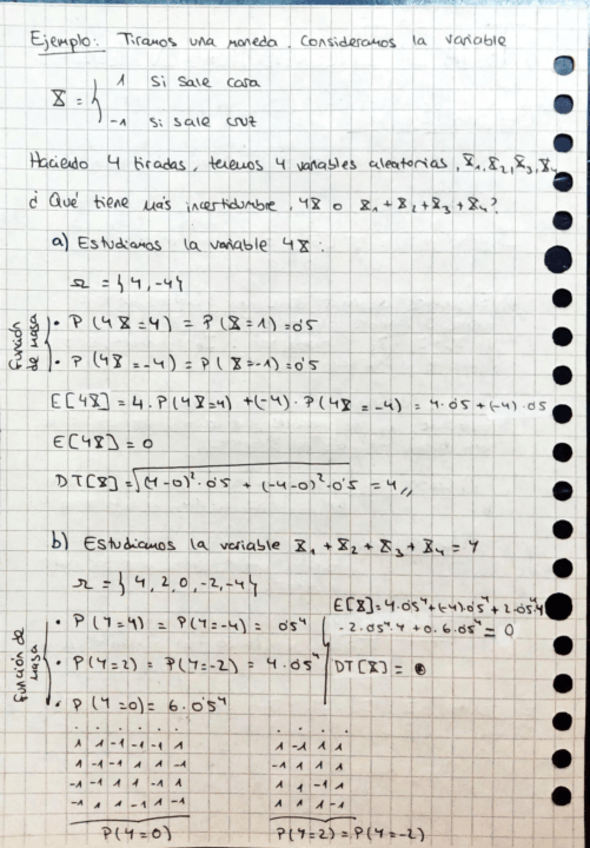 Ejemplo: Tiramos una moneda. Consideramos la variable
X = { 1 si sale cara
-1 si sale cruz
Haciendo 4 tiradas, tenemos 4 variables aleatorias, X₁, X₂, X₃, X₄
¿Qué tiene más incertidumbre, 4X o X₁ + X₂ + X₃ + X₄?
a) Estudiamos la variable 4X:
Ω = {4, -4}
Función de masa
• P(4X = 4) = P(X = 1) = 0'5
• P(4X = -4) = P(X = -1) = 0'5
E[4X] = 4 · P(4X = 4) + (-4) · P(4X = -4) = 4 · 0'5 + (-4) · 0'5
E[4X] = 0
DT[X] = √(4-0)² · 0'5 + (-4-0)² · 0'5 = 4 //
b) Estudiamos la variable X₁ + X₂ + X₃ + X₄ = Y
Ω = {4, 2, 0, -2, -4}
Función de masa
• P(Y = 4) = P(Y = -4) = 0'5⁴
• P(Y = 2) = P(Y = -2) = 4 · 0'5⁴
• P(Y = 0) = 6 · 0'5⁴
E[X] = 4 · 0'5⁴ + (-4) · 0'5⁴ + 2 · 0'5⁴ · 4
- 2 · 0'5⁴ · 4 + 0 · 6 · 0'5⁴ = 0
DT[X] =
1 1 -1 -1 -1 1
1 -1 -1 1 1 -1
-1 -1 1 1 -1 1
-1 1 1 -1 1 -1
P(Y = 0)
1 -1 1 1
-1 1 1 1
1 1 -1 1
1 1 1 -1
P(Y = 2) = P(Y = -2)